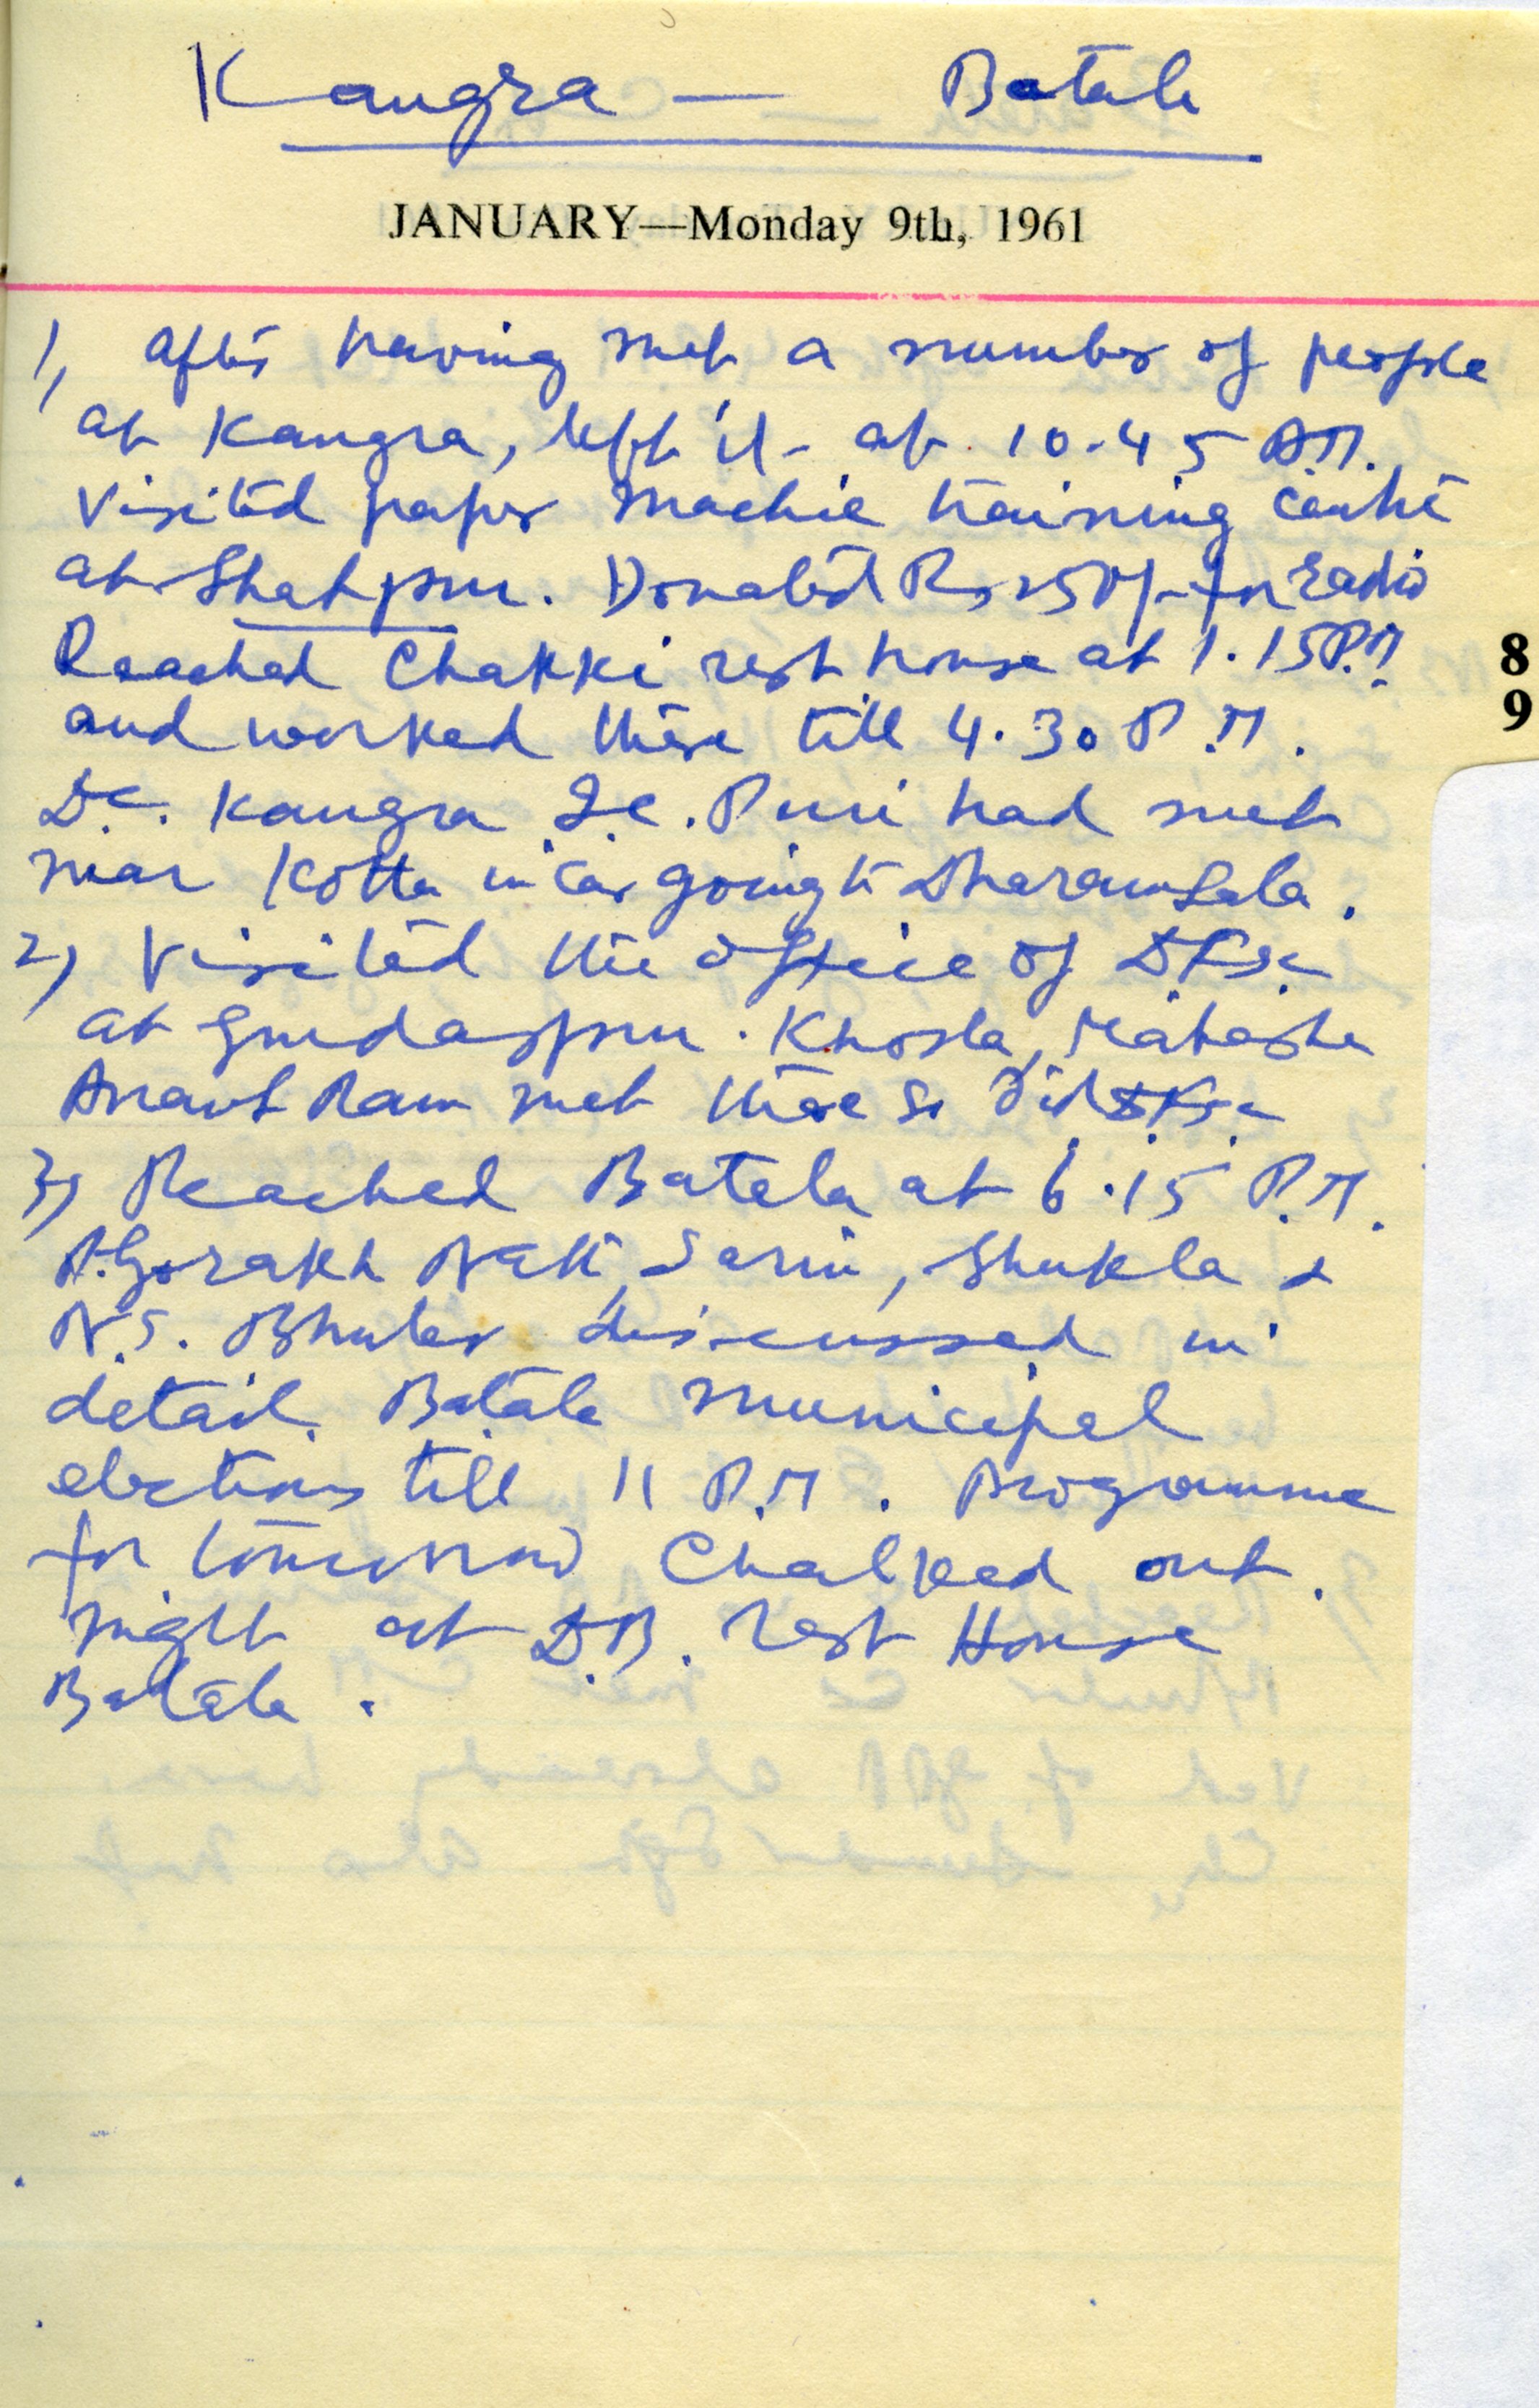 Kangra — Batala
JANUARY—Monday 9th, 1961
1) After having met a number of people
at Kangra, left it at 10.45 A.M.
Visited paper machie training centre
at Shahpur. Donated Rs 250/- for radio
Reached Chakki rest house at 1.15 P.M
8
and worked there till 4.30 P.M.
9
D.C. Kangra Puri had met
near Kotla in car going to Dharamsala.
2) Visited the office of
at Gurdaspur. Khosla, Mahasha
Anant Ram met there so did
3) Reached Batala at 6.15 P.M.
Gorakh Nath, Sarin, Shukla &
N.S. Bhuler discussed in
detail Batala municipal
elections till 11 P.M. Programme
for tomorrow Chalked out.
Night at D.B. rest House
Batala.